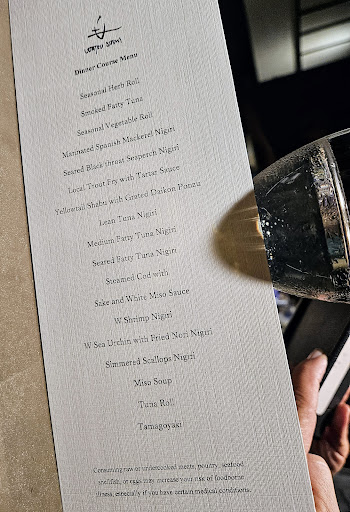 Dinner Course Menu
Seasonal Herb Roll
Smoked Fatty Tuna
Seasonal Vegetable Roll
Marinated Spanish Mackerel Nigiri
Seared Black throat Seaperch Nigiri
Local Trout Fry with Tartar Sauce
Yellowtail Shabu with Grated Daikon Ponzu
Lean Tuna Nigiri
Medium Fatty Tuna Nigiri
Seared Fatty Tuna Nigiri
Steamed Cod with
Sake and White Miso Sauce
W.Shrimp Nigiri
W Sea Urchin with Fried Nori Nigiri
Simmered Scallops Nigiri
Miso Soup
Tuna Roll
Tamagoyaki
Consuming raw or undercooked meats, poultry, seafood
shellfish, or eggs may increase your risk of foodborne
illness, especially if you have certain medical conditions.